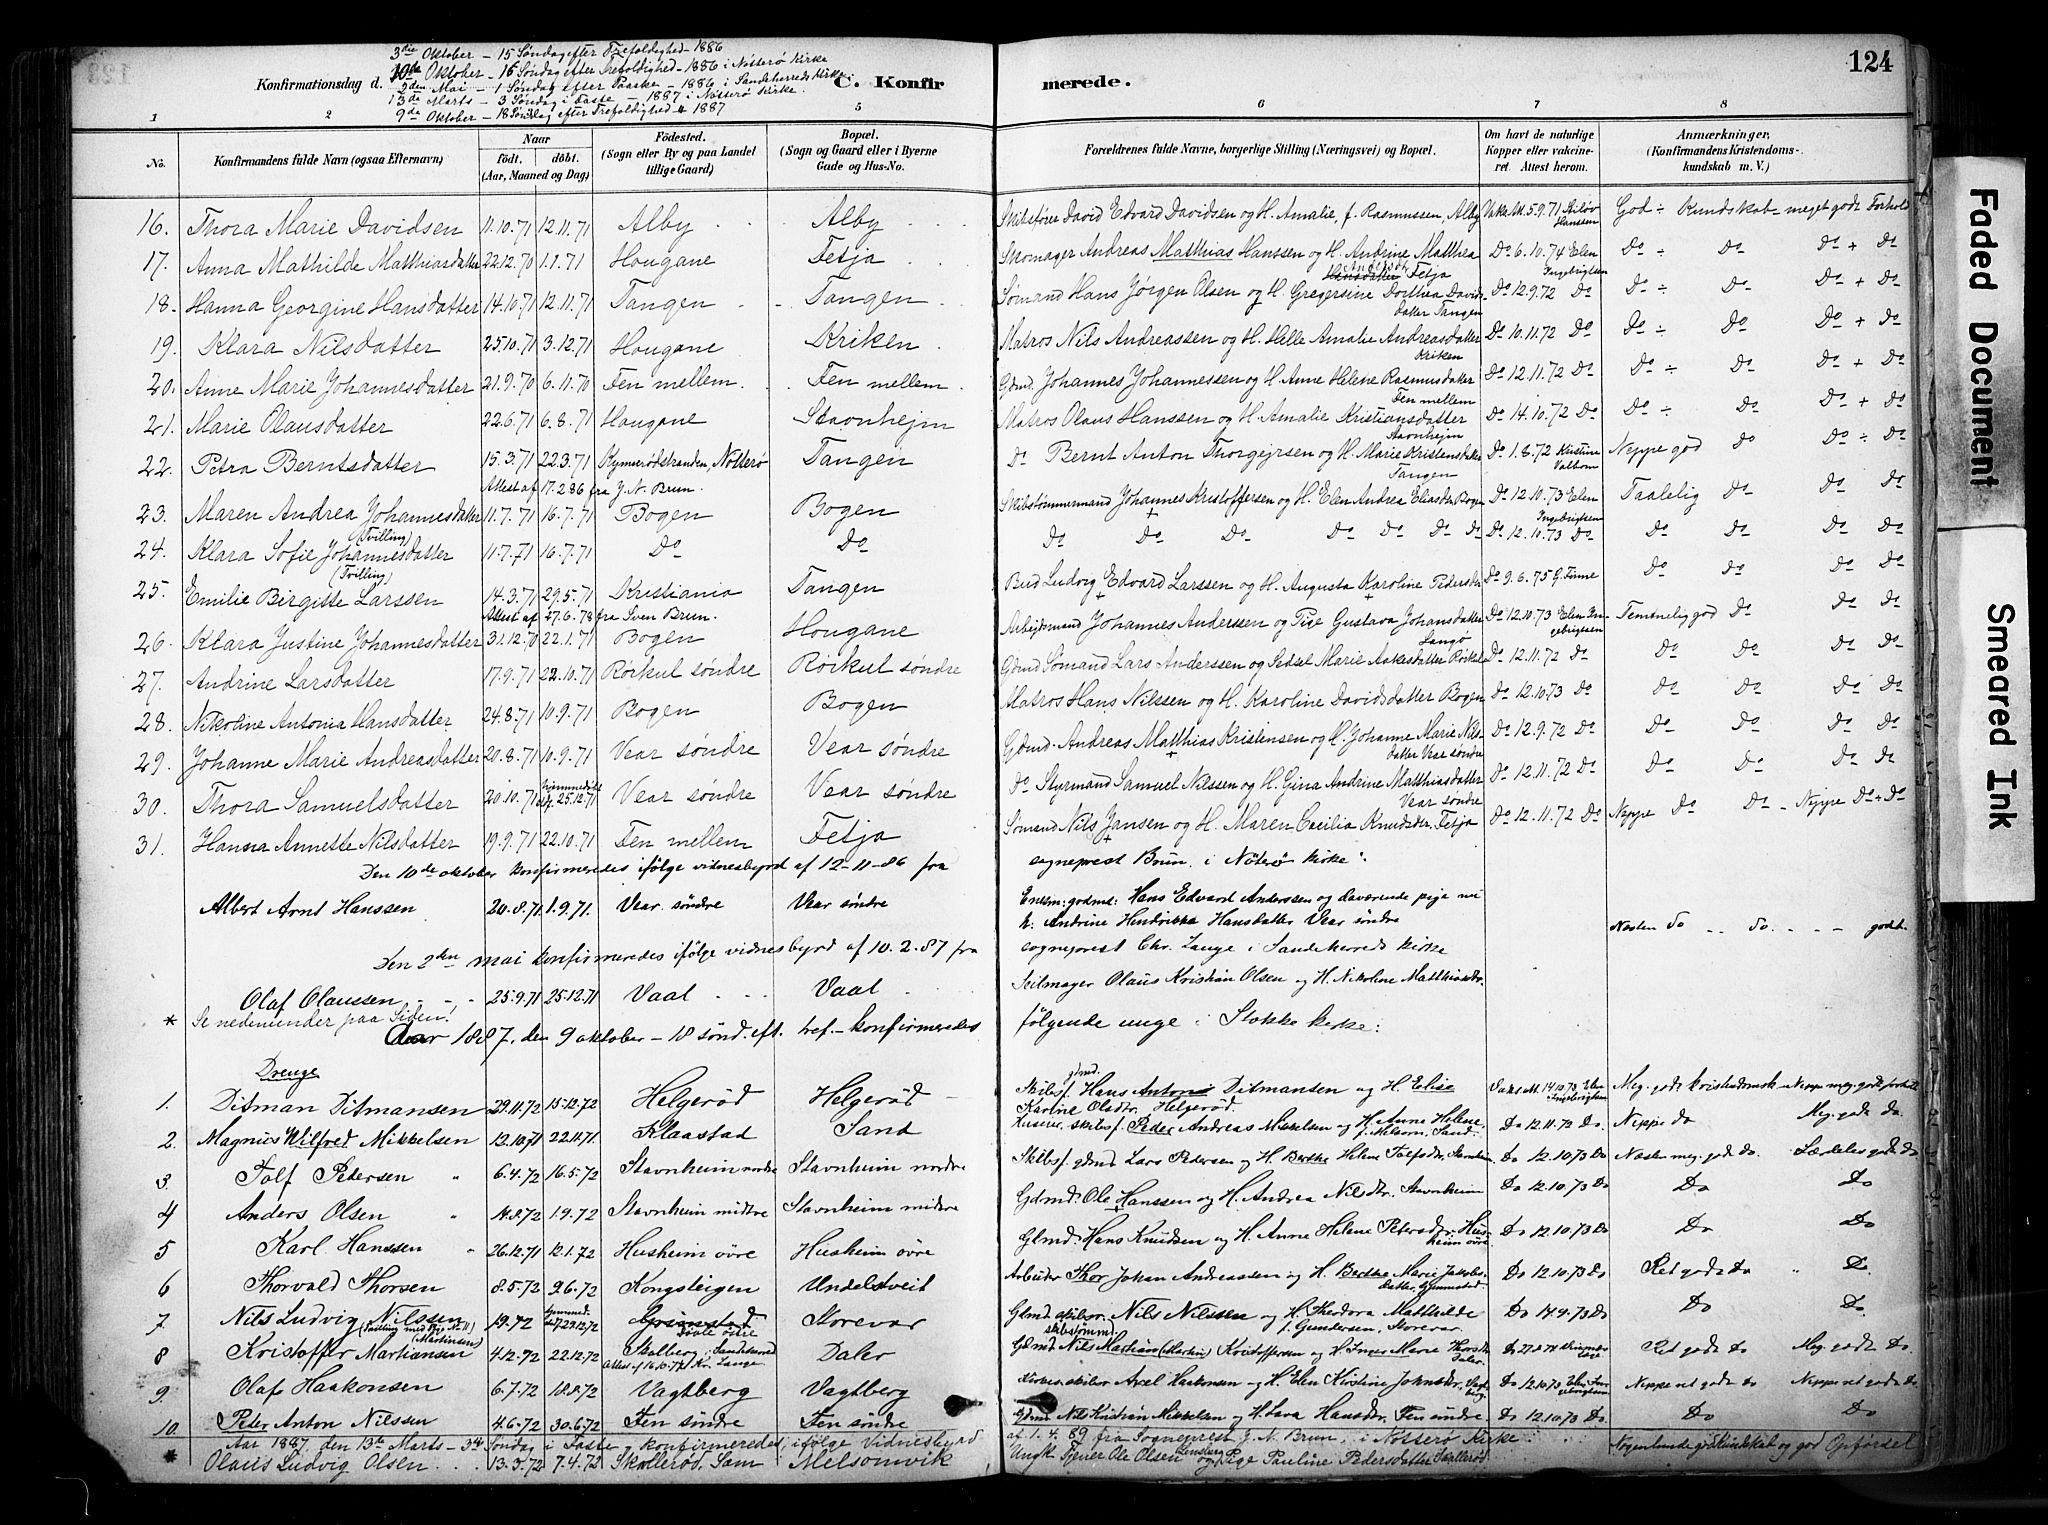 3die Oktober - 15 Søndag efter Trefoldighed - 1886
10de Oktober - 16 Søndag efter Trefoldighed - 1886 i Nøtterø Kirke
Konfirmationsdag d. 2den Mai - 1 Søndag efter Paaske - 1886 i Sandeherreds Kirke.
13de Marts - 3 Søndag i Faste - 1887 i Nøtterø Kirke.
9de Oktober - 18 Søndag efter Trefoldighed - 1887
C. Konfirmerede.
124
1 2 3 4 5 6 7 8
No. Konfirmandens fulde Navn (ogsaa Efternavn) Naar født. døbt. (Aar, Maaned og Dag) Fødested. (Sogn eller By og paa Landet tillige Gaard) Bopæl. (Sogn og Gaard eller i Byerne Gade og Hus-No. Forældrenes fulde Navne, borgerlige Stilling (Næringsvei) og Bopæl. Om havt de naturlige Kopper eller vakcineret. Attest herom. Anmærkninger, (Konfirmandens Kristendomskundskab m. V.)
16. Thora Marie Davidsen 11.10.71 12.11.71 Alby Alby Skibsfører David Edvard Davidsen og H. Amalie, f. Rasmussen, Alby 5.9.71 Hanssen God ÷ Kundskab - meget godt Forhold
17. Anna Mathilde Matthiasdatter 22.12.70 1.1.71 Hougane Fetja Skomager Andreas Matthias Hanssen og H. Andrine Matthea Fetja Do 6.10.74 Elen Ingebrigtsen Do ÷ Do Do + Do
18. Hanna Georgine Hansdatter 14.10.71 12.11.71 Tangen Tangen Sømand Hans Jørgen Olsen og H. Gregersine Dorthea Davidsdatter Tangen Do 12.9.72 Do Do ÷ Do Do + Do
19. Klara Nilsdatter 25.10.71 3.12.71 Hougane Kriken Matros Nils Andreassen og H. Helle Amalie Andreasdatter Kriken Do 10.11.72 Do Do ÷ Do Do + Do
20. Anne Marie Johannesdatter 21.9.70 6.11.70 Fen mellem Fen mellem Gdmd. Johannes Johannessen og H. Anne Helene Rasmusdatter Fen mellem Do 12.11.72 Do Do ÷ Do Do + Do
21. Marie Olausdatter 22.6.71 6.8.71 Hougane Stavnhejm Matros Olaus Hanssen og H. Amalie Kristiansdatter Stavnhejm Do 14.10.72 Do Do ÷ Do Do + Do
22. Petra Berntsdatter 15.3.71 22.3.71 Nøtterø Tangen Do Bernt Anton Thorgejrsen og H. Marie Kristensdatter Tangen Do 1.8.72 Kristine Neppe god Do Do ÷ Do
Attest af 17.2.86 fra J. N. Brun.
23. Maren Andrea Johannesdatter (Tvilling) 11.7.71 16.7.71 Bogen Bogen Skibstømmermand Johannes Kristoffersen og H. Elen Andrea Eliasdtr. Bogen Do 12.10.73 Elen Ingebrigtsen Taalelig Do Do Do
24. Klara Sofie Johannesdatter (Tvilling) 11.7.71 16.7.71 Do Do Do Do Do Do Do Do Do Do 12.10.73 Do Do Do Do Do
25. Emilie Birgitte Larssen 14.3.71 29.5.71 Kristiania Tangen Bud Ludvig Edvard Larssen og H. Augusta Karoline Pedersdtr Do 9.6.75 G. Finne Do Do Do Do
Attest af 27.6.78 fra Sven Brun.
26. Klara Justine Johannesdatter 31.12.70 22.1.71 Bogen Hougane Arbejdsmand Johannes Anderssen og Pige Gustava Johansdatter Langø Do 12.10.73 Elen Ingebrigtsen Temmelig god Do Do Do
27. Andrine Larsdatter 17.9.71 22.10.71 Røikul søndre Røikul søndre Gdmd. Sømand Lars Anderssen og Sedsel Marie Aakesdatter Røikul Do 12.11.72 Do Do Do Do Do
28. Nikoline Antonia Hansdatter 24.8.71 10.9.71 Bogen Bogen Matros Hans Nilssen og H. Karoline Davidsdatter Bogen Do 12.10.73 Do Do Do Do Do
29. Johanne Marie Andreasdatter 20.8.71 10.9.71 Vear søndre Vear søndre Gdmd. Andreas Matthias Kristensen og H. Johanne Marie Nilsdatter Vear søndre Do 12.9.72 Do Do Do Do Do
30. Thora Samuelsdatter 20.10.71 hjemmedøbt 25.12.71 Vear søndre Vear søndre Do Styrmand Samuel Nilssen og H. Gina Andrine Matthiasdatter Vear søndre Do 12.11.72 Do Do Do Do Do
31. Hanna Annette Nilsdatter 19.9.71 22.10.71 Fen mellem Fetja Sømand Nils Jansen og H. Maren Cecilia Knudsdtr. Fetja Do 12.11.72 Do Neppe Do Do - Neppe Do + Do
Den 10de oktober konfirmeredes ifølge vidnesbyrd af 12-11-86 fra sogneprest Brun i Nøterø kirke:
Albert Arnt Hanssen 20.8.71 1.9.71. Vear søndre Vear søndre godmd: Hans Edvard Anderssen og daværende pige nu h: Andrine Hendrikka Hansdatter Vear søndre Næsten do do. godt.
Den 2den mai konfirmeredes ifølge vidnesbyrd af 10.2.87 fra sogneprest Chr. Lange i Sandeherreds kirke
Olaf Olaussen 25.9.71 25.12.71 Vaal Vaal Seilmager Olaus Kristian Olsen og H. Nikoline Matthiasdtr.
* Se nedenunder paa Siden!
Aar 1887, den 9 oktober - 18 sønd. eft. tref. - konfirmeredes følgende unge i Stokke kirke:
Drenge
1. Ditman Ditmansen 29.11.72 15.12.72 Helgerød Helgerød Skibsf. gdmd. Hans Anton Ditmansen og H. Elise Karine Olsdtr. Helgerød. 14.10.73 Elen Ingebrigtsen Meg. godt kristendomsk. Neppe meg. godt forhold
2 Magnus Wilfred Mikkelsen 12.10.71 22.11.71. Klaastad Sand Huseier, skibsf. Peder Andreas Mikkelsen og H. Anne Helene, f. Melsom, Sand. Do 12.11.72 Do. Neppe do Meg. godt do.
3 Tolf Pedersen 6.4.72 16.5.72 Stavnheim nordre Stavnheim nordre Skibsf. gdmd Lars Pedersen og H. Berthe Helene Tolfsdtr, Stavnheim Do 12.10.73 Do Næsten meg. godt do. Særdeles godt do
4 Anders Olsen 11.8.72 1.9.72 Stavnheim midtre Stavnheim midtre Gdmd. Ole Hanssen og H. Andrea Nilsdtr. Stavnheim Do 12.10.73 Do Do Do
5 Karl Hanssen 26.12.71 12.1.72 Husheim øvre Husheim øvre Gdmd. Hans Knudsen og H. Anne Helene Petersdtr. Husheim øvre Do 12.10.73 Do Do Do
6 Thorvald Thorsen 8.5.72 26.72 Kongsteigen Undelstveit Arbeider Thor Johan Andreassen og H. Berthe Marie Jakobsdatter, Do 12.10.73 Do Ret godt Do Do.
7. Nils Ludvig Nilssen 19.72 29.12.72 Storevar Gdmd skibsr. Nils Nilssen og H. Theodora Mathilde f. Gundersen, Storevar Do 14.9.73 Do Do Do.
8 Kristoffer Martiansen (Martinsen) 4.12.72 22.12.72 Skalberg, Sandeherred Daler Gdmd skibstømmd. Nils Martian (Martin) Kristoffersen og H. Inger Marie Thorsdtr Daler Do 27.8.74 Ret godt Do Meg. godt Do
9. Olaf Haakonsen 6.7.72 18.8.72 Vagtberg Vagtberg Axel Haakonsen og H. Elen Kirstine Johnsdtr, Vagtberg. Do 12.10.73 Elen Ingebrigtsen Neppe ret godt do Neppe ret godt do
10. Peter Anton Nilssen 4.6.72 30.6.72 Fen søndre Fen søndre Gdmd. Nils Kristian Mikkelsen og H. Lava Hansdtr. Fen søndre Do 12.10.73 Do. Do Do
* Aar 1887, den 13de Marts - 3die Søndag i Faste - konfirmeredes, ifølge Vidnesbyrd af 1.4.89 fra Sogneprest J. N. Brun, i Nøtterø Kirke:
Olaus Ludvig Olsen 13.3.72 7.4.72 Skallerød, Sem Melsomvik Ungk. Tjener Ole Olsen og Pige Pauline Pedersdatter Skallerød. Nogenlunde god Kundskab og god Opførsel
Faded Document
Smeared Ink